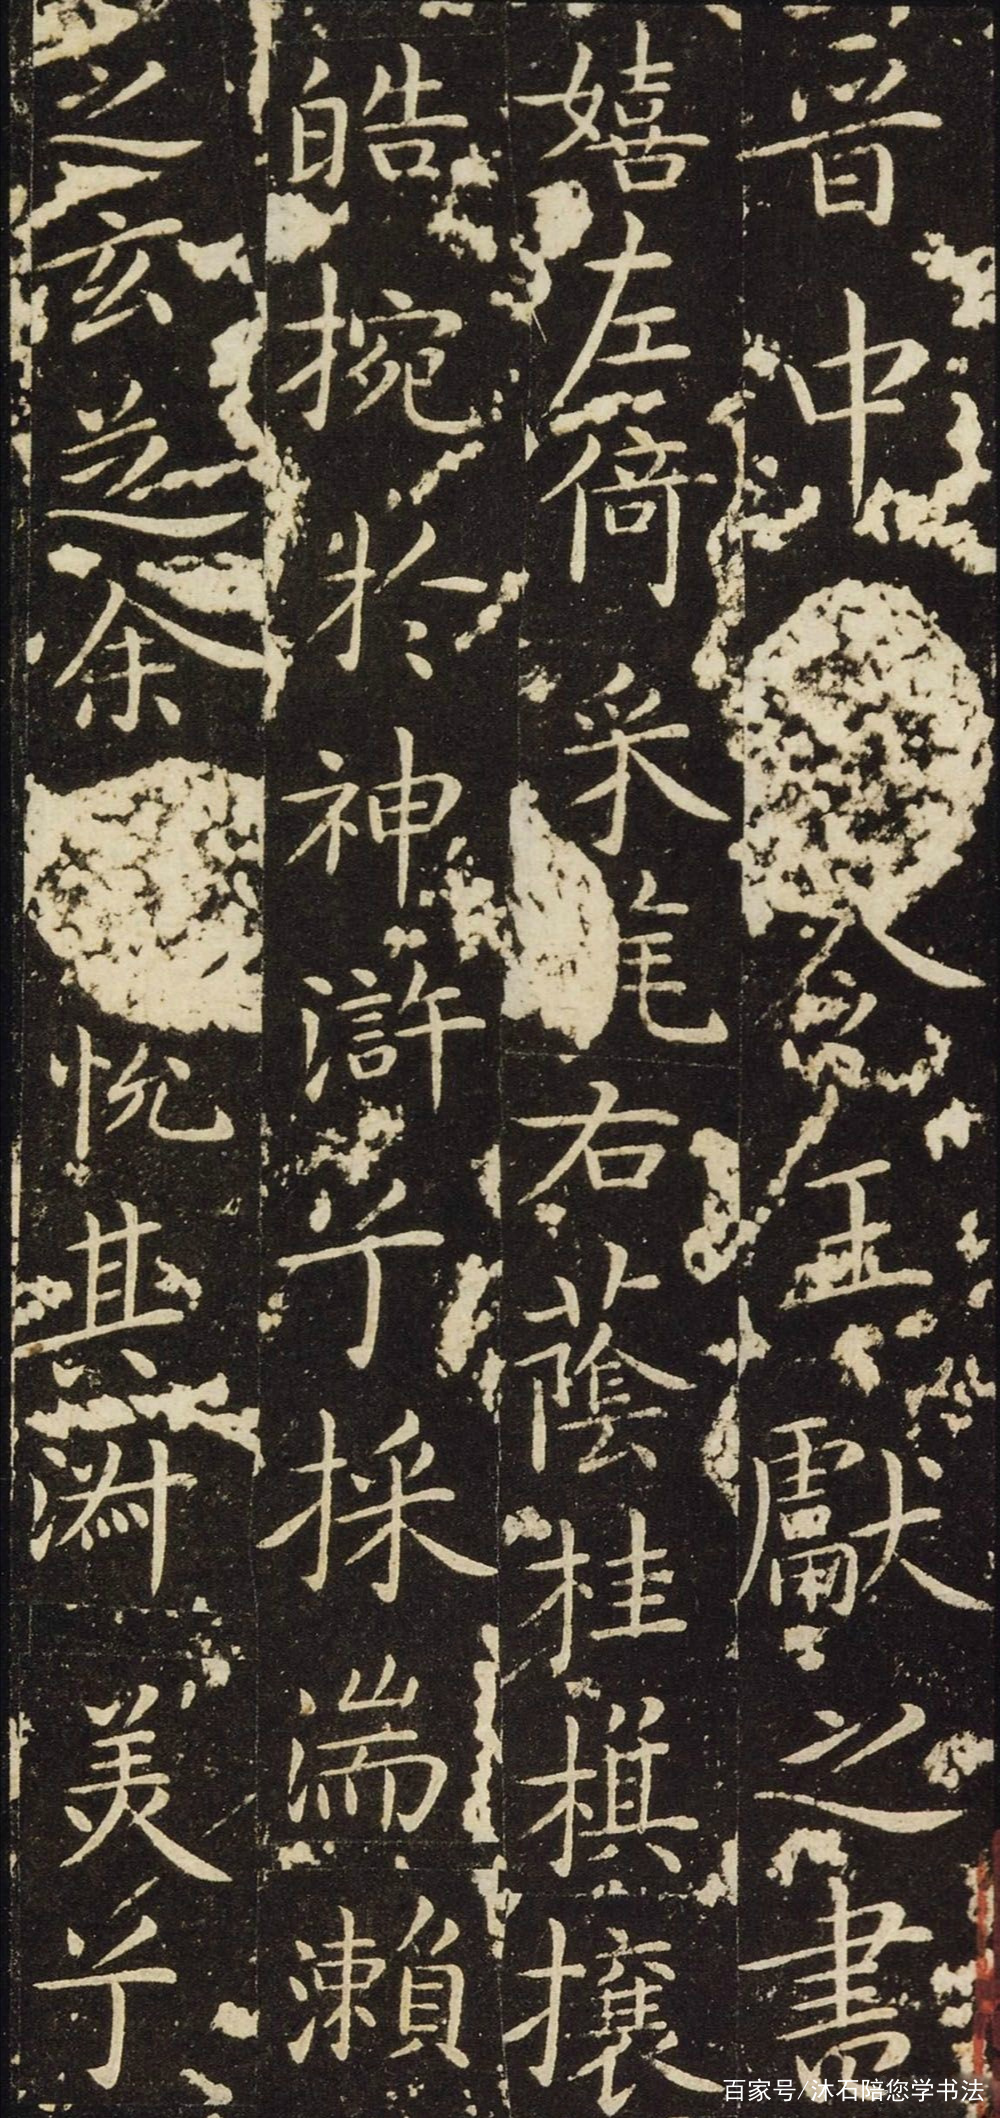 晉中 令王獻之書
嬉左倚采旄右蔭桂棋攘
皓捥於神滸兮採湍瀨
之玄芝余 悦其淑美兮
百家号/沐石陪您学书法